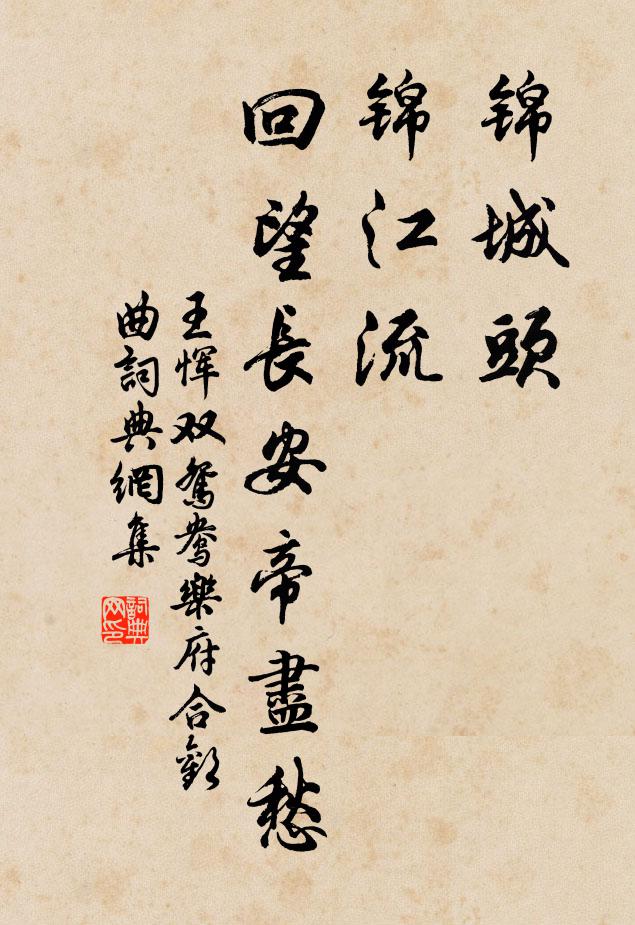 锦城頭
锦江流
回望長安帝盡愁
王恽双鸳鸯樂府合歡
曲詞典網集
詞典网印